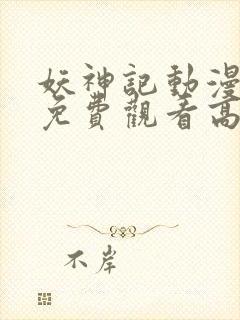 妖神記動漫
免費觀看高
不岸